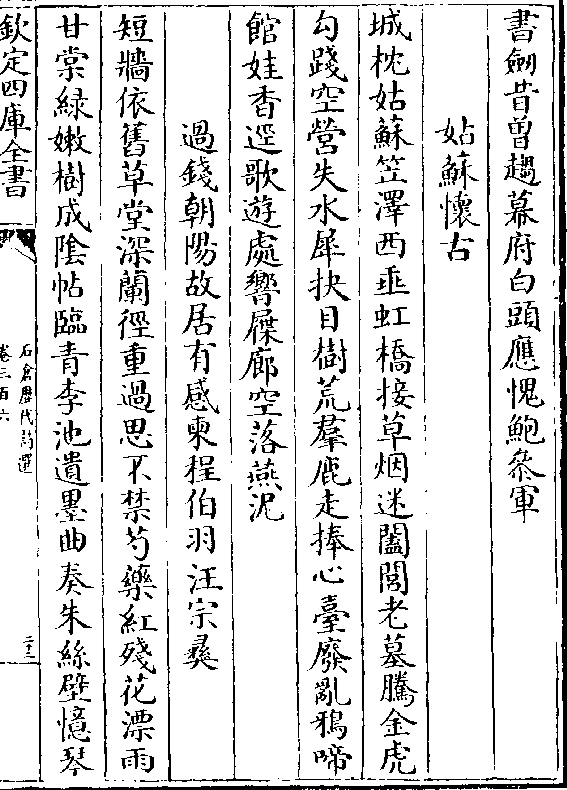 書劒昔曽趨幕府白頭應愧鮑叅軍
姑蘇懐古
城枕姑蘇笠澤西垂虹橋接草烟迷闔閭老墓騰金虎
勾踐空營失水犀抉目樹荒羣鹿走捧心臺廢亂鴉啼
館娃香逕歌遊處響屧廊空落燕泥
過錢朝陽故居有感柬程伯羽汪宗彞
短牆依舊草堂深蘭徑重過思不禁芍藥紅殘花漂雨
甘棠緑嫩樹成陰帖臨青李池遺墨曲奏朱絲壁憶琴
欽定四庫全書
石倉歴代詩選
卷三百六
二十三